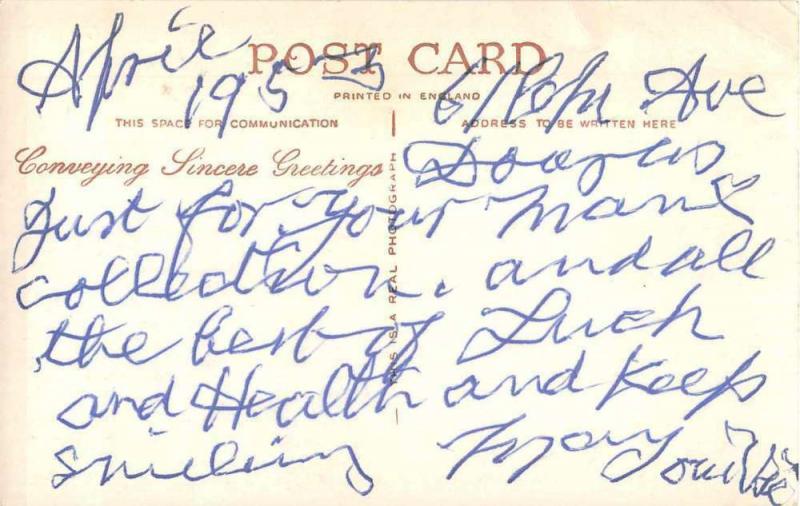 POST CARD
PRINTED IN ENGLAND
THIS SPACE FOR COMMUNICATION
ADDRESS TO BE WRITTEN HERE
Conveying Sincere Greetings
THIS IS A REAL PHOTOGRAPH
April
1953
Ave
Douglas
Just for your Manx
collection. and all
the best of Luck
and Health and Keep
smiling